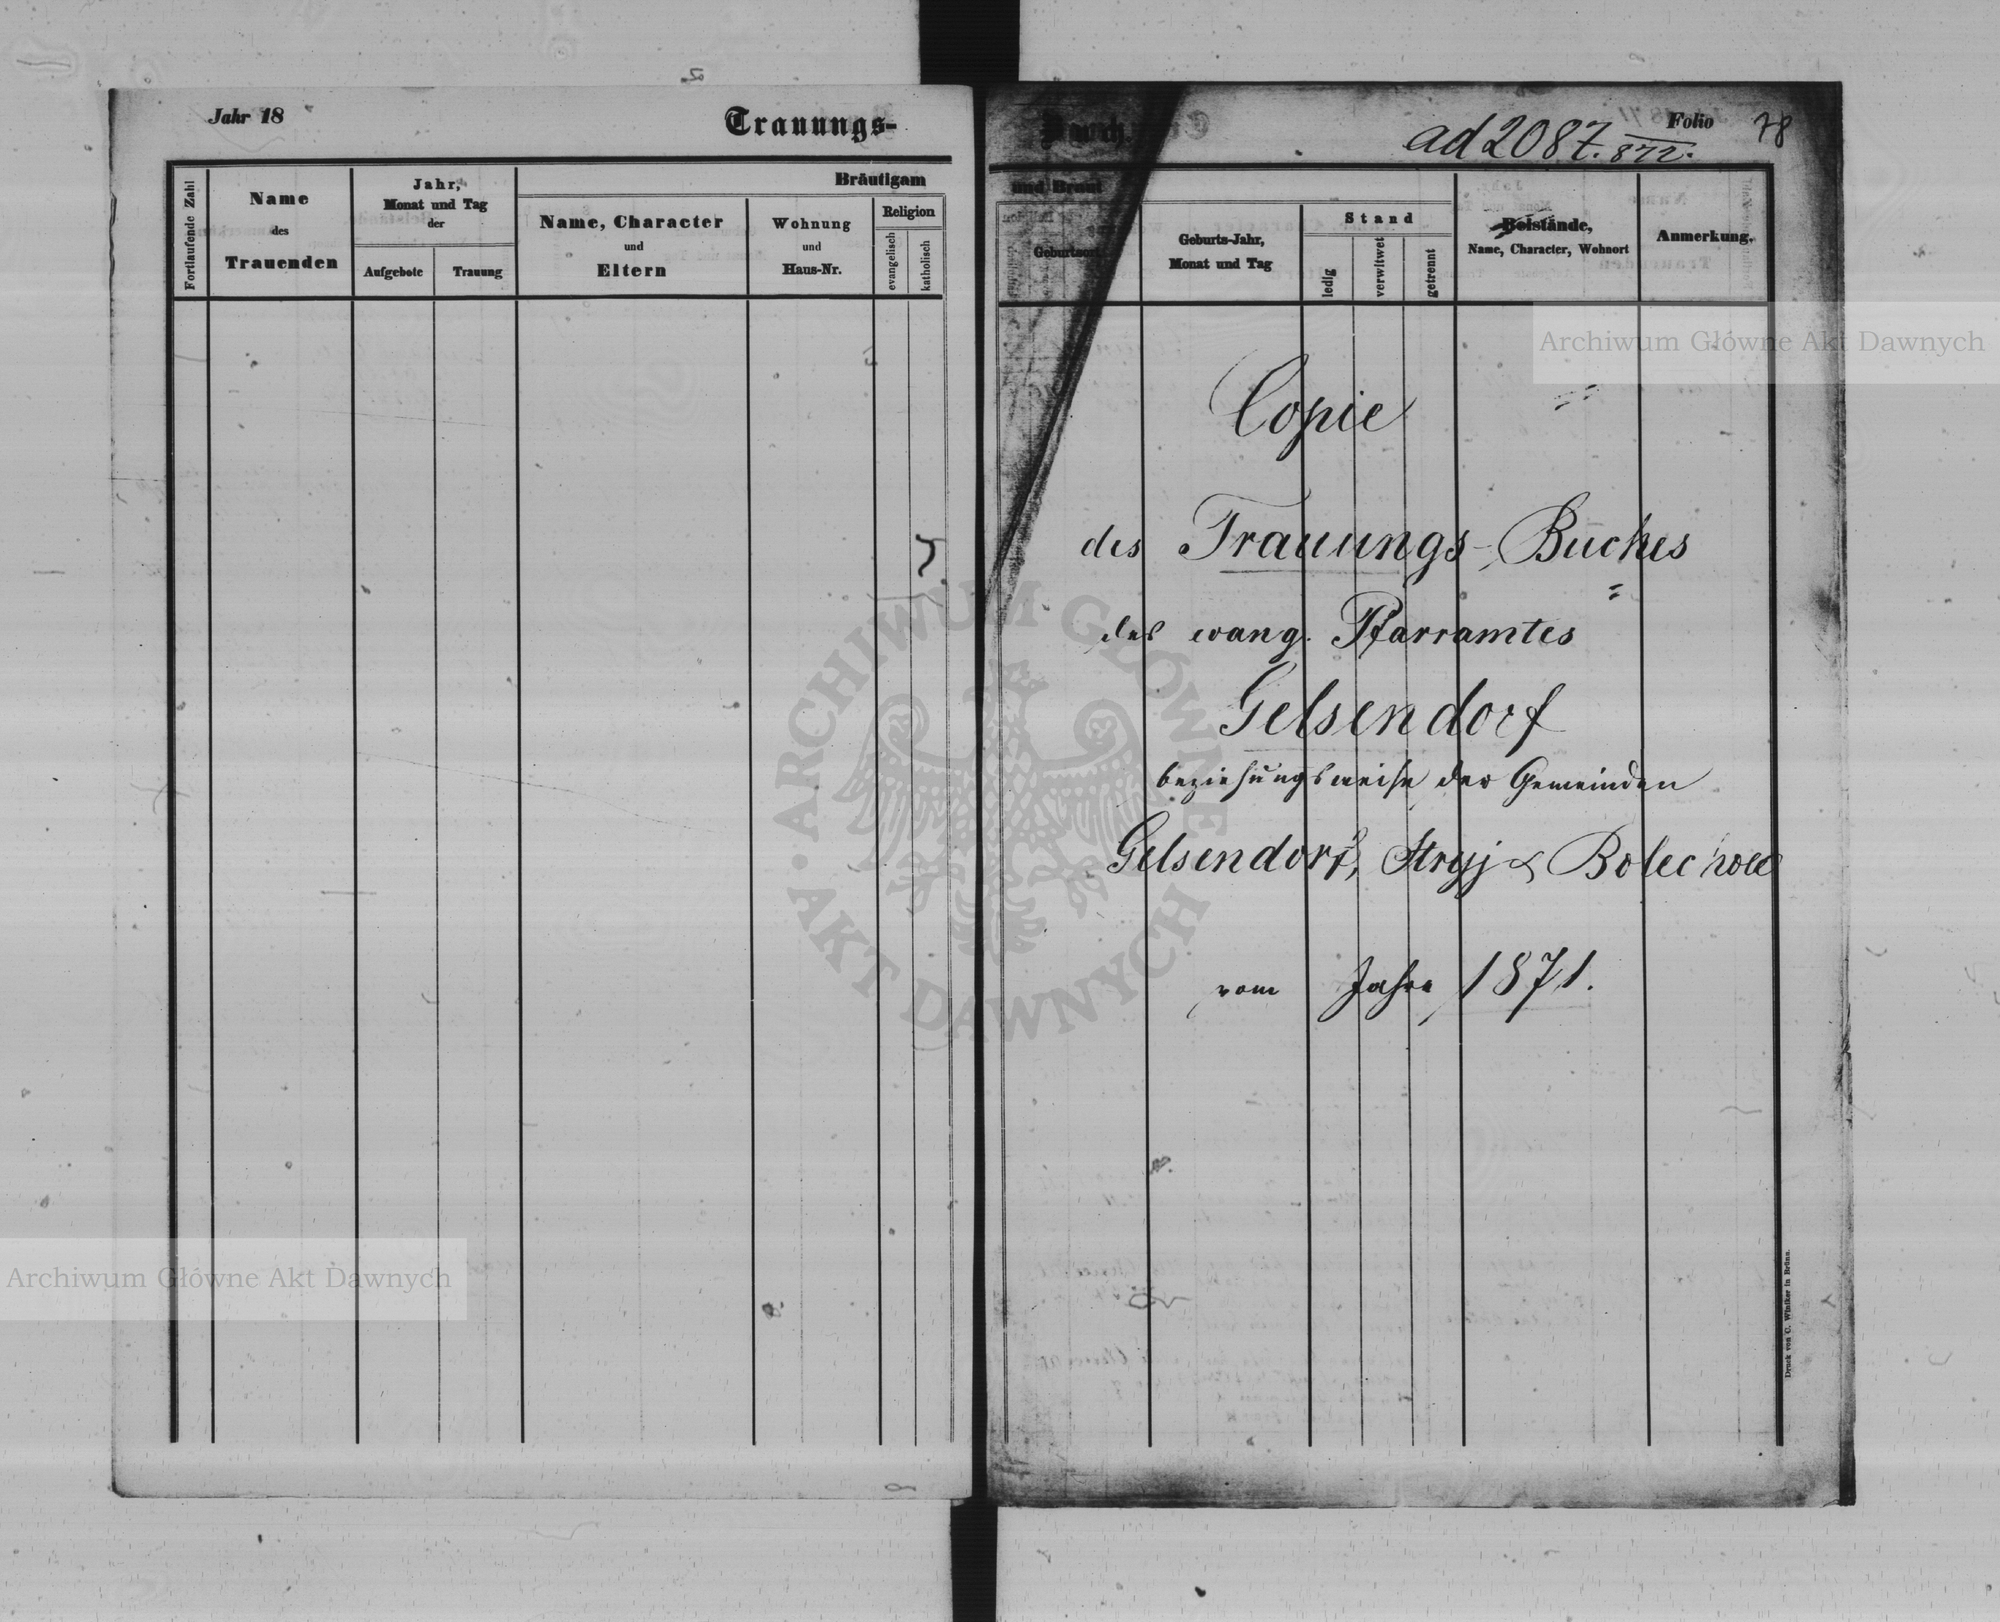 Jahr 18
Trauungs-
Fortlaufende Zahl
Name
des
Trauenden
Jahr,
Monat und Tag
der
Aufgebote
Trauung
Bräutigam
Name, Character
und
Eltern
Wohnung
und
Haus-Nr.
Religion
evangelisch
katholisch
ad 2087. 872.
Folio 78
und Braut
Geburtsort
Geburts-Jahr,
Monat und Tag
Stand
ledig
verwitwet
getrennt
Beistände,
Name, Character, Wohnort
Anmerkung.
Copie
des Trauungs-Buches
des evang. Pfarramtes
Gelsendorf
beziehungsweise der Gemeinden
Gelsendorf, Stryj & Bolechow
vom Jahre 1871.
Druck von C. Winiker in Brünn.
Archiwum Główne Akt Dawnych
ARCHIWUM GŁÓWNE AKT DAWNYCH
Archiwum Główne Akt Dawnych